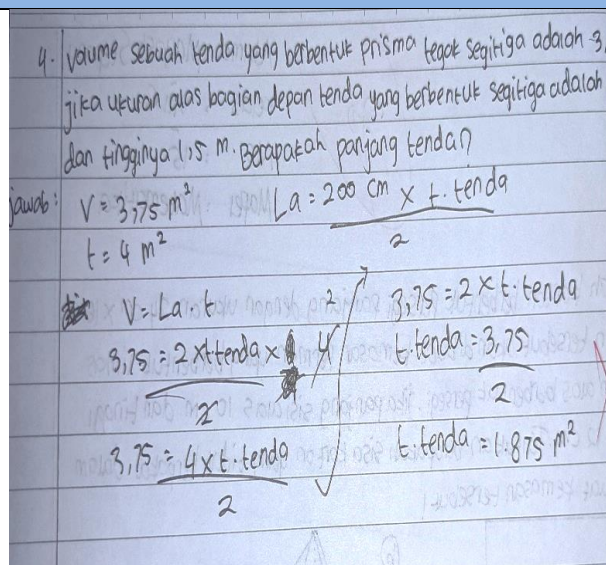 4. Volume sebuah tenda yang berbentuk prisma tegak segitiga adalah 3,
jika ukuran alas bagian depan tenda yang berbentuk segitiga adalah
dan tingginya 1,5 m. Berapakah panjang tenda?
jawab: V = 3,75 m²
t = 4 m²
La = 200 cm x t. tenda
2
V = La . t
3,75 = 2 x t tenda x 4 2
2
3,75 = 4 x t. tenda
2
3,75 = 2 x t. tenda
t. tenda = 3,75
2
t. tenda = 1.875 m²